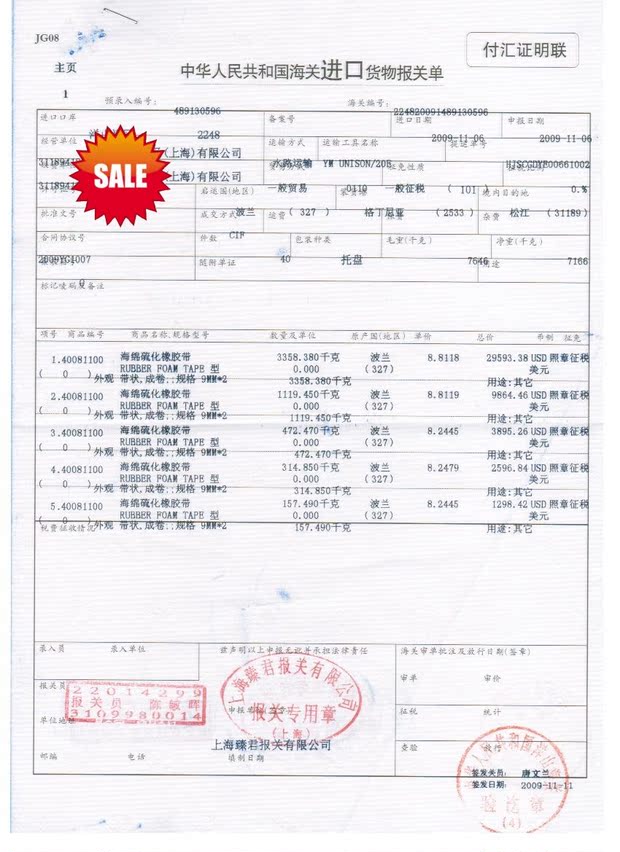 JG08
付汇证明联
主页
中华人民共和国海关进口货物报关单
1
预录入编号:
489130596
海关编号:
224820091489130596
进口口岸
备案号
进口日期
申报日期
2248
2009-11-06
2009-11-06
经营单位
(上海)有限公司
运输方式
运输工具名称
提运单号
水路运输
YM UNISON/20E
HJSCGDYE00661002
(上海)有限公司
一般贸易
0110
一般征税
( 101 )
征免性质
启运国(地区)
境内目的地
0.%
批准文号
成交方式
波兰
( 327 )
格丁尼亚
( 2533 )
松江
( 31189)
运费
杂费
合同协议号
件数
CIF
包装种类
毛重(千克)
净重(千克)
随附单证
40
托盘
7646
用途
7166
标记唛码及备注
0
项号 商品编号
商品名称,规格型号
数量及单位
原产国(地区)
单价
总价
币制
征免
1.40081100 海绵硫化橡胶带 3358.380千克 波兰 8.8118 29593.38 USD 照章征税
RUBBER FOAM TAPE 型 0.000 (327) 美元
( 0 )外观 带状,成卷.;规格 9MM*2 3358.380千克 用途:其它
2.40081100 海绵硫化橡胶带 1119.450千克 波兰 8.8119 9864.46 USD 照章征税
RUBBER FOAM TAPE 型 0.000 (327) 美元
( 0 )外观 带状,成卷.;规格 9MM*2 1119.450千克 用途:其它
3.40081100 海绵硫化橡胶带 472.470千克 波兰 8.2445 3895.26 USD 照章征税
RUBBER FOAM TAPE 型 0.000 (327) 美元
( 0 )外观 带状,成卷.;规格 9MM*2 472.470千克 用途:其它
4.40081100 海绵硫化橡胶带 314.850千克 波兰 8.2479 2596.84 USD 照章征税
RUBBER FOAM TAPE 型 0.000 (327) 美元
( 0 )外观 带状,成卷.;规格 9MM*2 314.850千克 用途:其它
5.40081100 海绵硫化橡胶带 157.490千克 波兰 8.2445 1298.42 USD 照章征税
RUBBER FOAM TAPE 型 0.000 (327) 美元
( 0 )外观 带状,成卷.;规格 9MM*2 157.490千克 用途:其它
税费征收情况
SALE
录入员
录入单位
兹声明以上申报无讹并承担法律责任
海关审单批注及放行日期(签章)
报关员
22014299
报关员 陈敏晖
3109980014
上海臻君报关有限公司
报关专用章
(上海)
审单
审价
单位地址
征税
统计
上海臻君报关有限公司
查验
放行
邮编
电话
填制日期
签发关员: 唐文兰
签发日期: 2009-11-11
验讫章
(4)